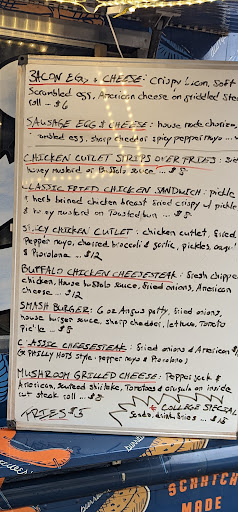 BACON EGG & CHEESE: Crispy bacon, soft
Scrambled egg, American cheese on griddled
roll - $6
SAUSAGE EGG & CHEESE: house made chorizo,
egg, sharp cheddar spicy pepper mayo
CHICKEN CUTLET STRIPS OVER FRIES:
honey mustard or Buffalo sauce. ... $5
CLASSIC FRIED CHICKEN SANDWICH: pickle
& herb brined chicken breast fried crispy w/ pickle
& honey mustard on Toasted bun ... $5
SPICY CHICKEN CUTLET: chicken cutlet, fried
Pepper mayo, charred broccoli & garlic, pickles,
& Provolone ... $12
BUFFALO CHICKEN CHEESESTEAK: fresh chipped
chicken, House buffalo sauce, fried onions, American
cheese ... $12
SMASH BURGER: 6 oz Angus patty, fried onions,
house burger sauce, sharp cheddar, lettuce, Tomato
Pickle ... $5
CLASSIC CHEESESTEAK: fried onions & American
(or PHILLY HOTS style: pepper mayo & Provolone)
MUSHROOM GRILLED CHEESE: Pepper jack &
American, sauteed shiitake, Tomatoes & arugula on inside
out steak roll ... $5
FRIES $5
COLLEGE SPECIAL
Sando, drink, fries ...
SCRATCH
MADE